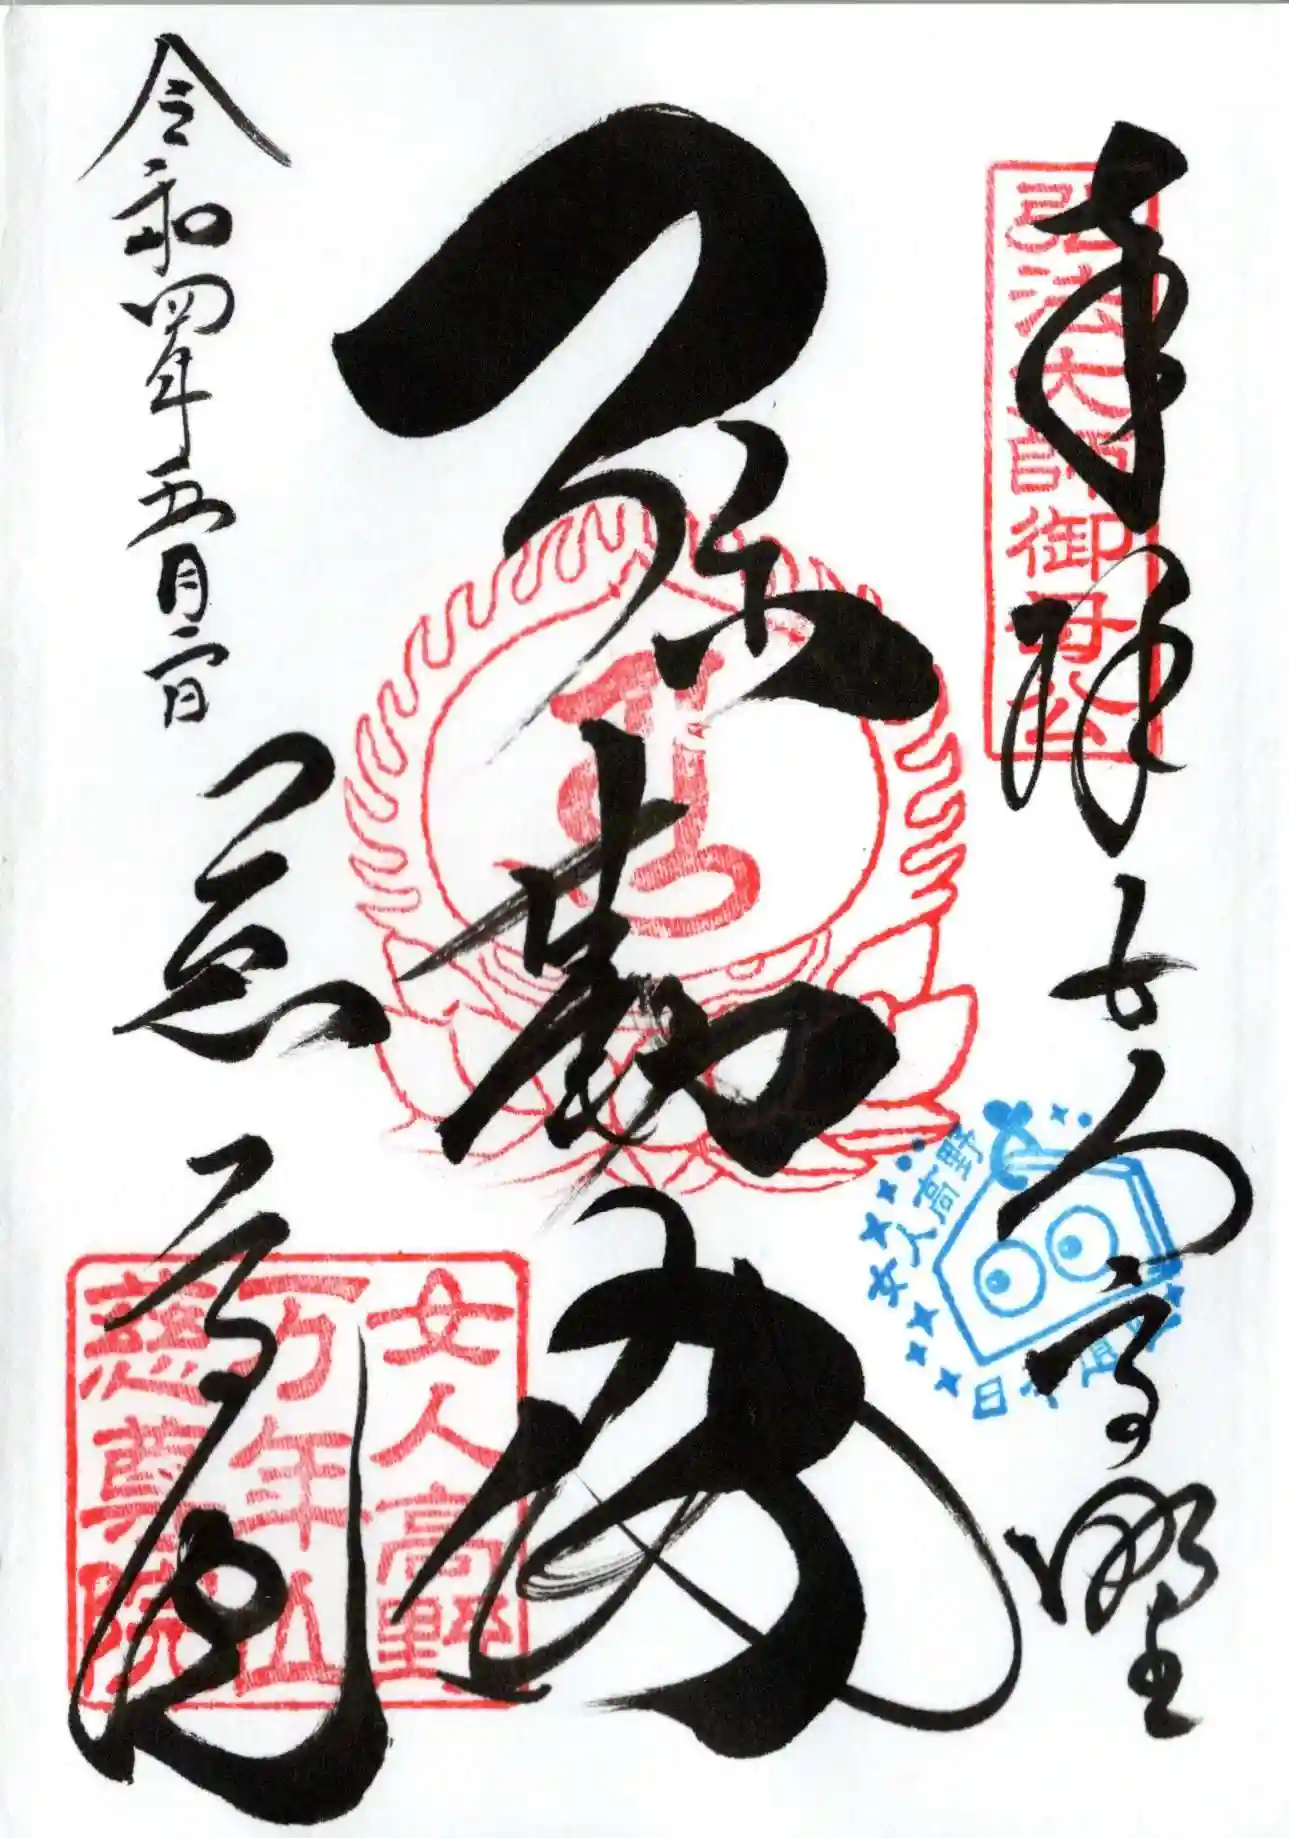 奉拝
女人高野
弘法大師御母公
弥勒
令和四年五月二日
慈尊院
女人高野
万年山
慈尊院
女人高野
日